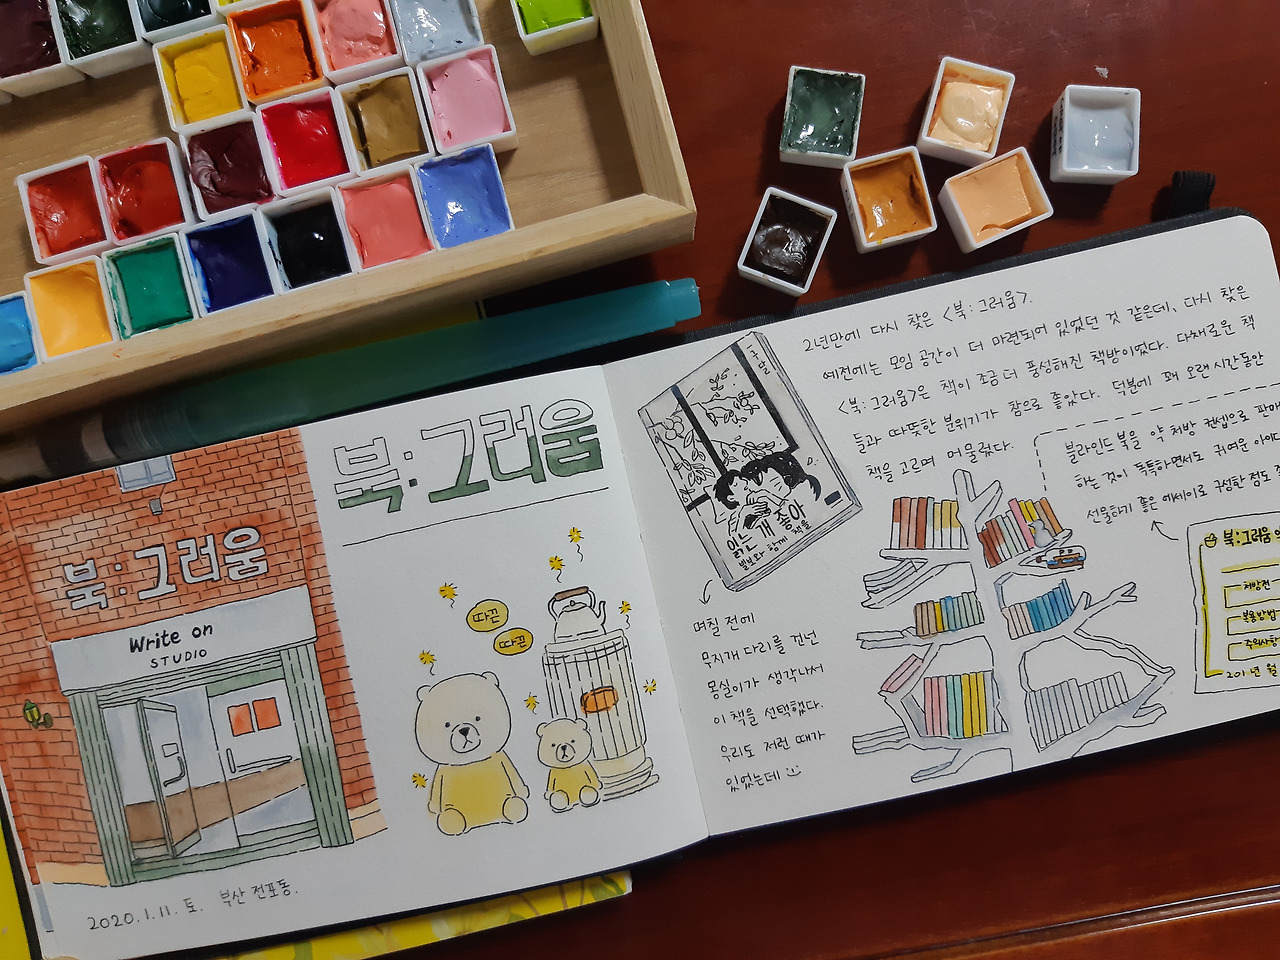 북:그러움
Write on
STUDIO
2020.1.11. 토. 부산 전포동.
북:그러움
따끈
따끈
읽는 개 좋아
2년만에 다시 찾은 <북:그러움>.
예전에는 모임 공간이 더 마련되어 있었던 것 같은데, 다시 찾은
<북:그러움>은 책이 조금 더 풍성해진 책방이었다. 다채로운 책
들과 따뜻한 분위기가 참으로 좋았다. 덕분에 꽤 오랜 시간동안
책을 고르며 머물렀다.
블라인드 북을 약 처방 컨셉으로 판매
하는 것이 독특하면서도 귀여운 아이
선물하기 좋은 에세이로 구성한 점도
며칠 전에
무지개 다리를 건넌
몽실이가 생각나서
이 책을 선택했다.
우리도 저런 때가
있었는데
북:그러움
처방전
복용방법
주의사항
201 년 월